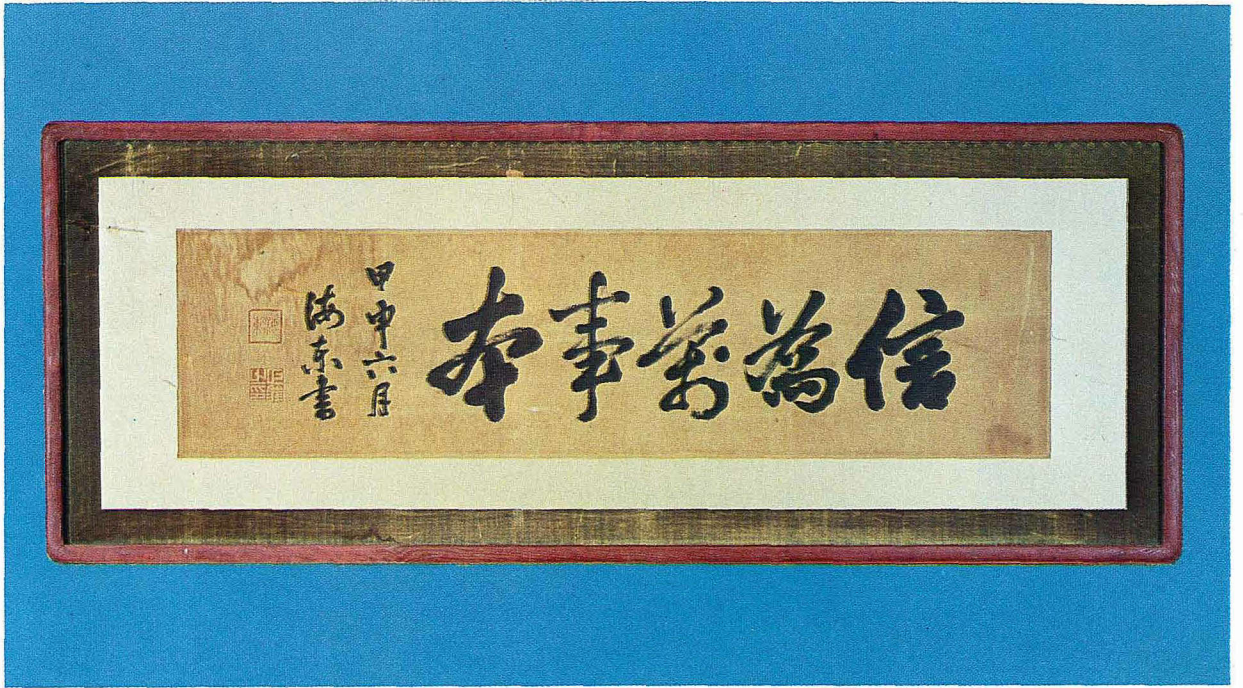 信為萬事本
甲申六月
海東書